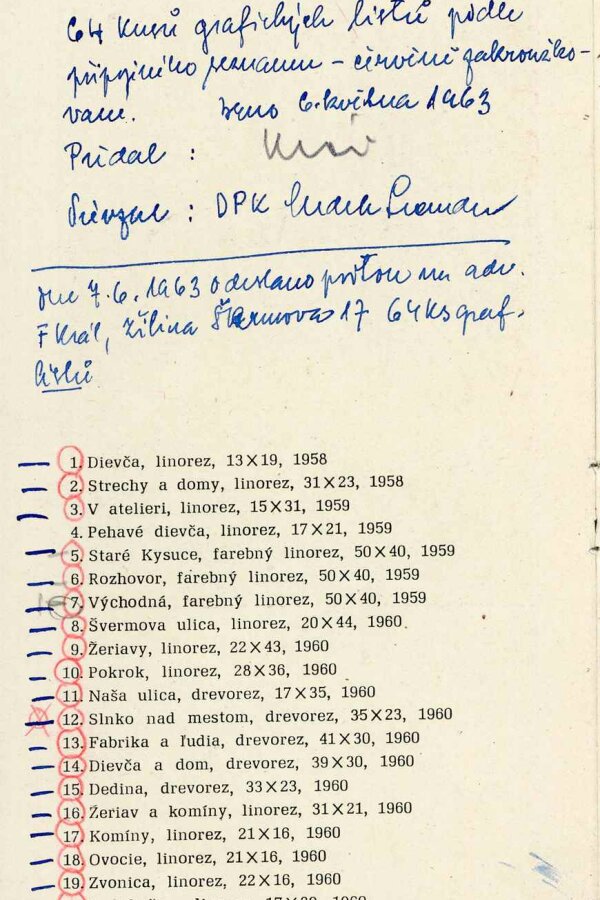 64 kusů grafických listů podle
připojeného seznamu - červeně zakroužko-
vané. Brno 6. května 1963
Předal :
Převzal : DPK
Dne 7.6.1963 odesláno poštou na adr.
F Král, Žilina Švermova 17 64 ks graf.
listů
1. Dievča, linorez, 13×19, 1958
2. Strechy a domy, linorez, 31×23, 1958
3. V atelieri, linorez, 15×31, 1959
4. Pehavé dievča, linorez, 17×21, 1959
5. Staré Kysuce, farebný linorez, 50×40, 1959
6. Rozhovor, farebný linorez, 50×40, 1959
7. Východná, farebný linorez, 50×40, 1959
8. Švermova ulica, linorez, 20×44, 1960
9. Žeriavy, linorez, 22×43, 1960
10. Pokrok, linorez, 28×36, 1960
11. Naša ulica, drevorez, 17×35, 1960
12. Slnko nad mestom, drevorez, 35×23, 1960
13. Fabrika a ľudia, drevorez, 41×30, 1960
14. Dievča a dom, drevorez, 39×30, 1960
15. Dedina, drevorez, 33×23, 1960
16. Žeriav a komíny, linorez, 31×21, 1960
17. Komíny, linorez, 21×16, 1960
18. Ovocie, linorez, 21×16, 1960
19. Zvonica, linorez, 22×16, 1960